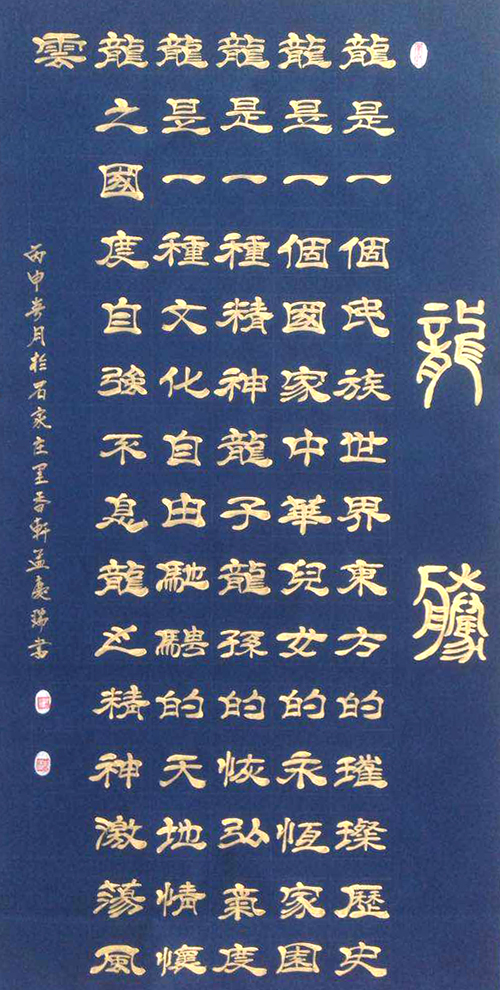 龍騰
龍是一個民族世界東方的璀璨歷史
龍昰一個國家中華兒女的永恆家園
龍是一種精神龍子龍孫的恢弘氣度
龍昰一種文化自由馳騁的天地情懷
龍之國度自強不息龍之精神激蕩風
雲
丙申月於石家庄墨香軒孟慶瑞書